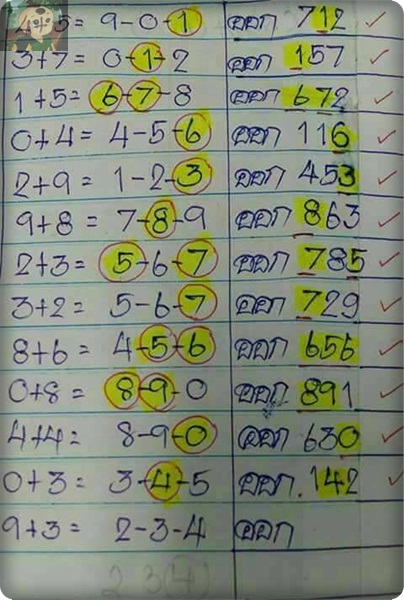 4+5= 9-0-1 ออก 712
3+7= 0-1-2 ออก 157
1+5= 6-7-8 ออก 672
0+4= 4-5-6 ออก 116
2+9= 1-2-3 ออก 453
9+8= 7-8-9 ออก 863
2+3= 5-6-7 ออก 785
3+2= 5-6-7 ออก 729
8+6= 4-5-6 ออก 656
0+8= 8-9-0 ออก 891
4+4= 8-9-0 ออก 630
0+3= 3-4-5 ออก. 142
9+3= 2-3-4 ออก
2 3(4)